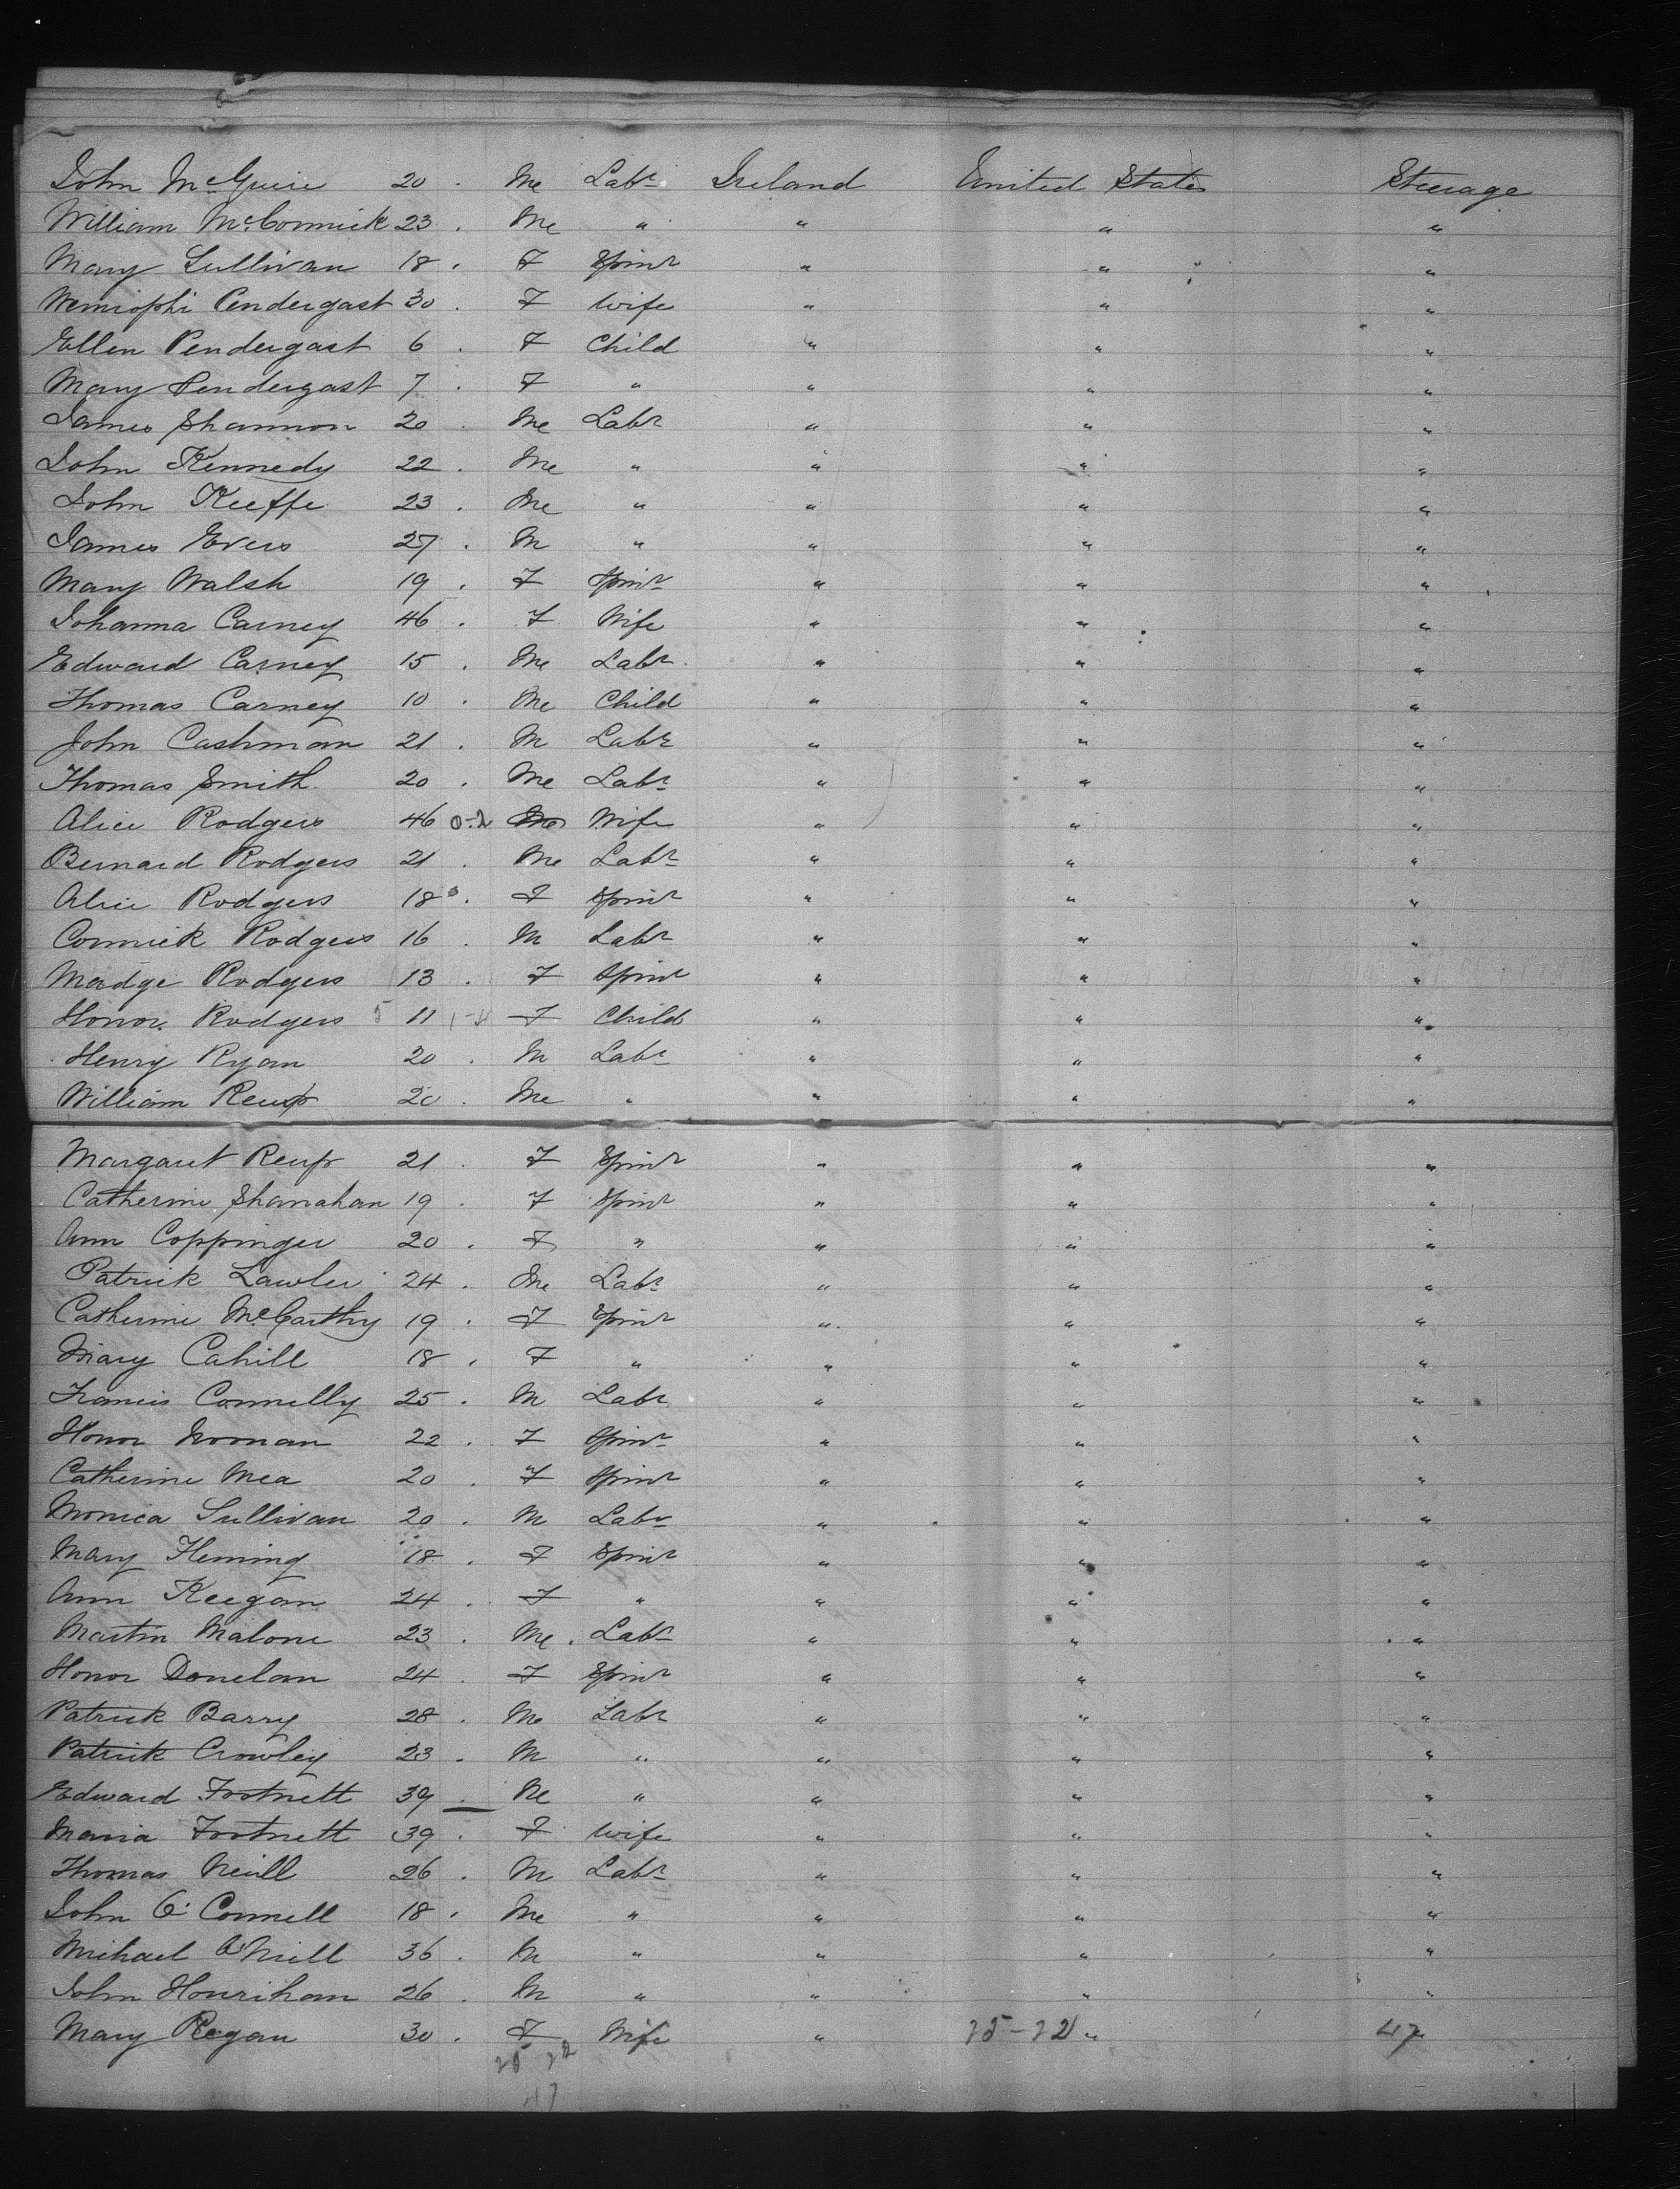 John McGuire 20 . M Labr Ireland United States Steerage
William McCormick 23 . M " " " "
Mary Sullivan 18 . F Spinr " " "
Pendergast 30 . F Wife " " "
Ellen Pendergast 6 . F Child " " "
Mary Pendergast 7 . F " " " "
James Shannon 20 . M Labr " " "
John Kennedy 22 . M " " " "
John Keeffe 23 . M " " " "
James Evers 27 . M " " " "
Mary Walsh 19 . F Spinr " " "
Johanna Carney 46 . F Wife " " "
Edward Carney 15 . M Labr " " "
Thomas Carney 10 . M Child " " "
John Cashman 21 . M Labr " " "
Thomas Smith 20 . M Labr " " "
Alice Rodgers 46 0-2 Wife " " "
Bernard Rodgers 21 . M Labr " " "
Alice Rodgers 18 . F Spinr " " "
Cormick Rodgers 16 . M Labr " " "
Madge Rodgers 13 . F Spinr " " "
Honor Rodgers 11 F Child " " "
Henry Ryan 20 . M Labr " " "
William 20 . M " " " "
Margaret 21 . F Spinr " " "
Catherine Shanahan 19 . F Spinr " " "
Ann Coppinger 20 . F " " " "
Patrick Lawler 24 . M Labr " " "
Catherine McCarthy 19 . F Spinr " " "
Mary Cahill 18 . F " " " "
Francis Connelly 25 . M Labr " " "
Honor Noonan 22 . F Spinr " " "
Catherine Mea 20 . F Spinr " " "
Monica Sullivan 20 . M Labr " " "
Mary Fleming 18 . F Spinr " " "
Ann Keegan 24 . F " " " "
Martin Malone 23 . M . Labr " " "
Honor Donelan 24 . F Spinr " " "
Patrick Barry 28 . M Labr " " "
Patrick Crowley 23 . M " " " "
Edward Footnett 39 . M " " " "
Maria Footnett 39 . F Wife " " "
Thomas Neill 26 . M Labr " " "
John O'Connell 18 . M " " " "
Michael O'Neill 36 . M " " " "
John Hourihan 26 . M " " " "
Mary Regan 30 . F Wife " 25-22 " 47
25 22
47